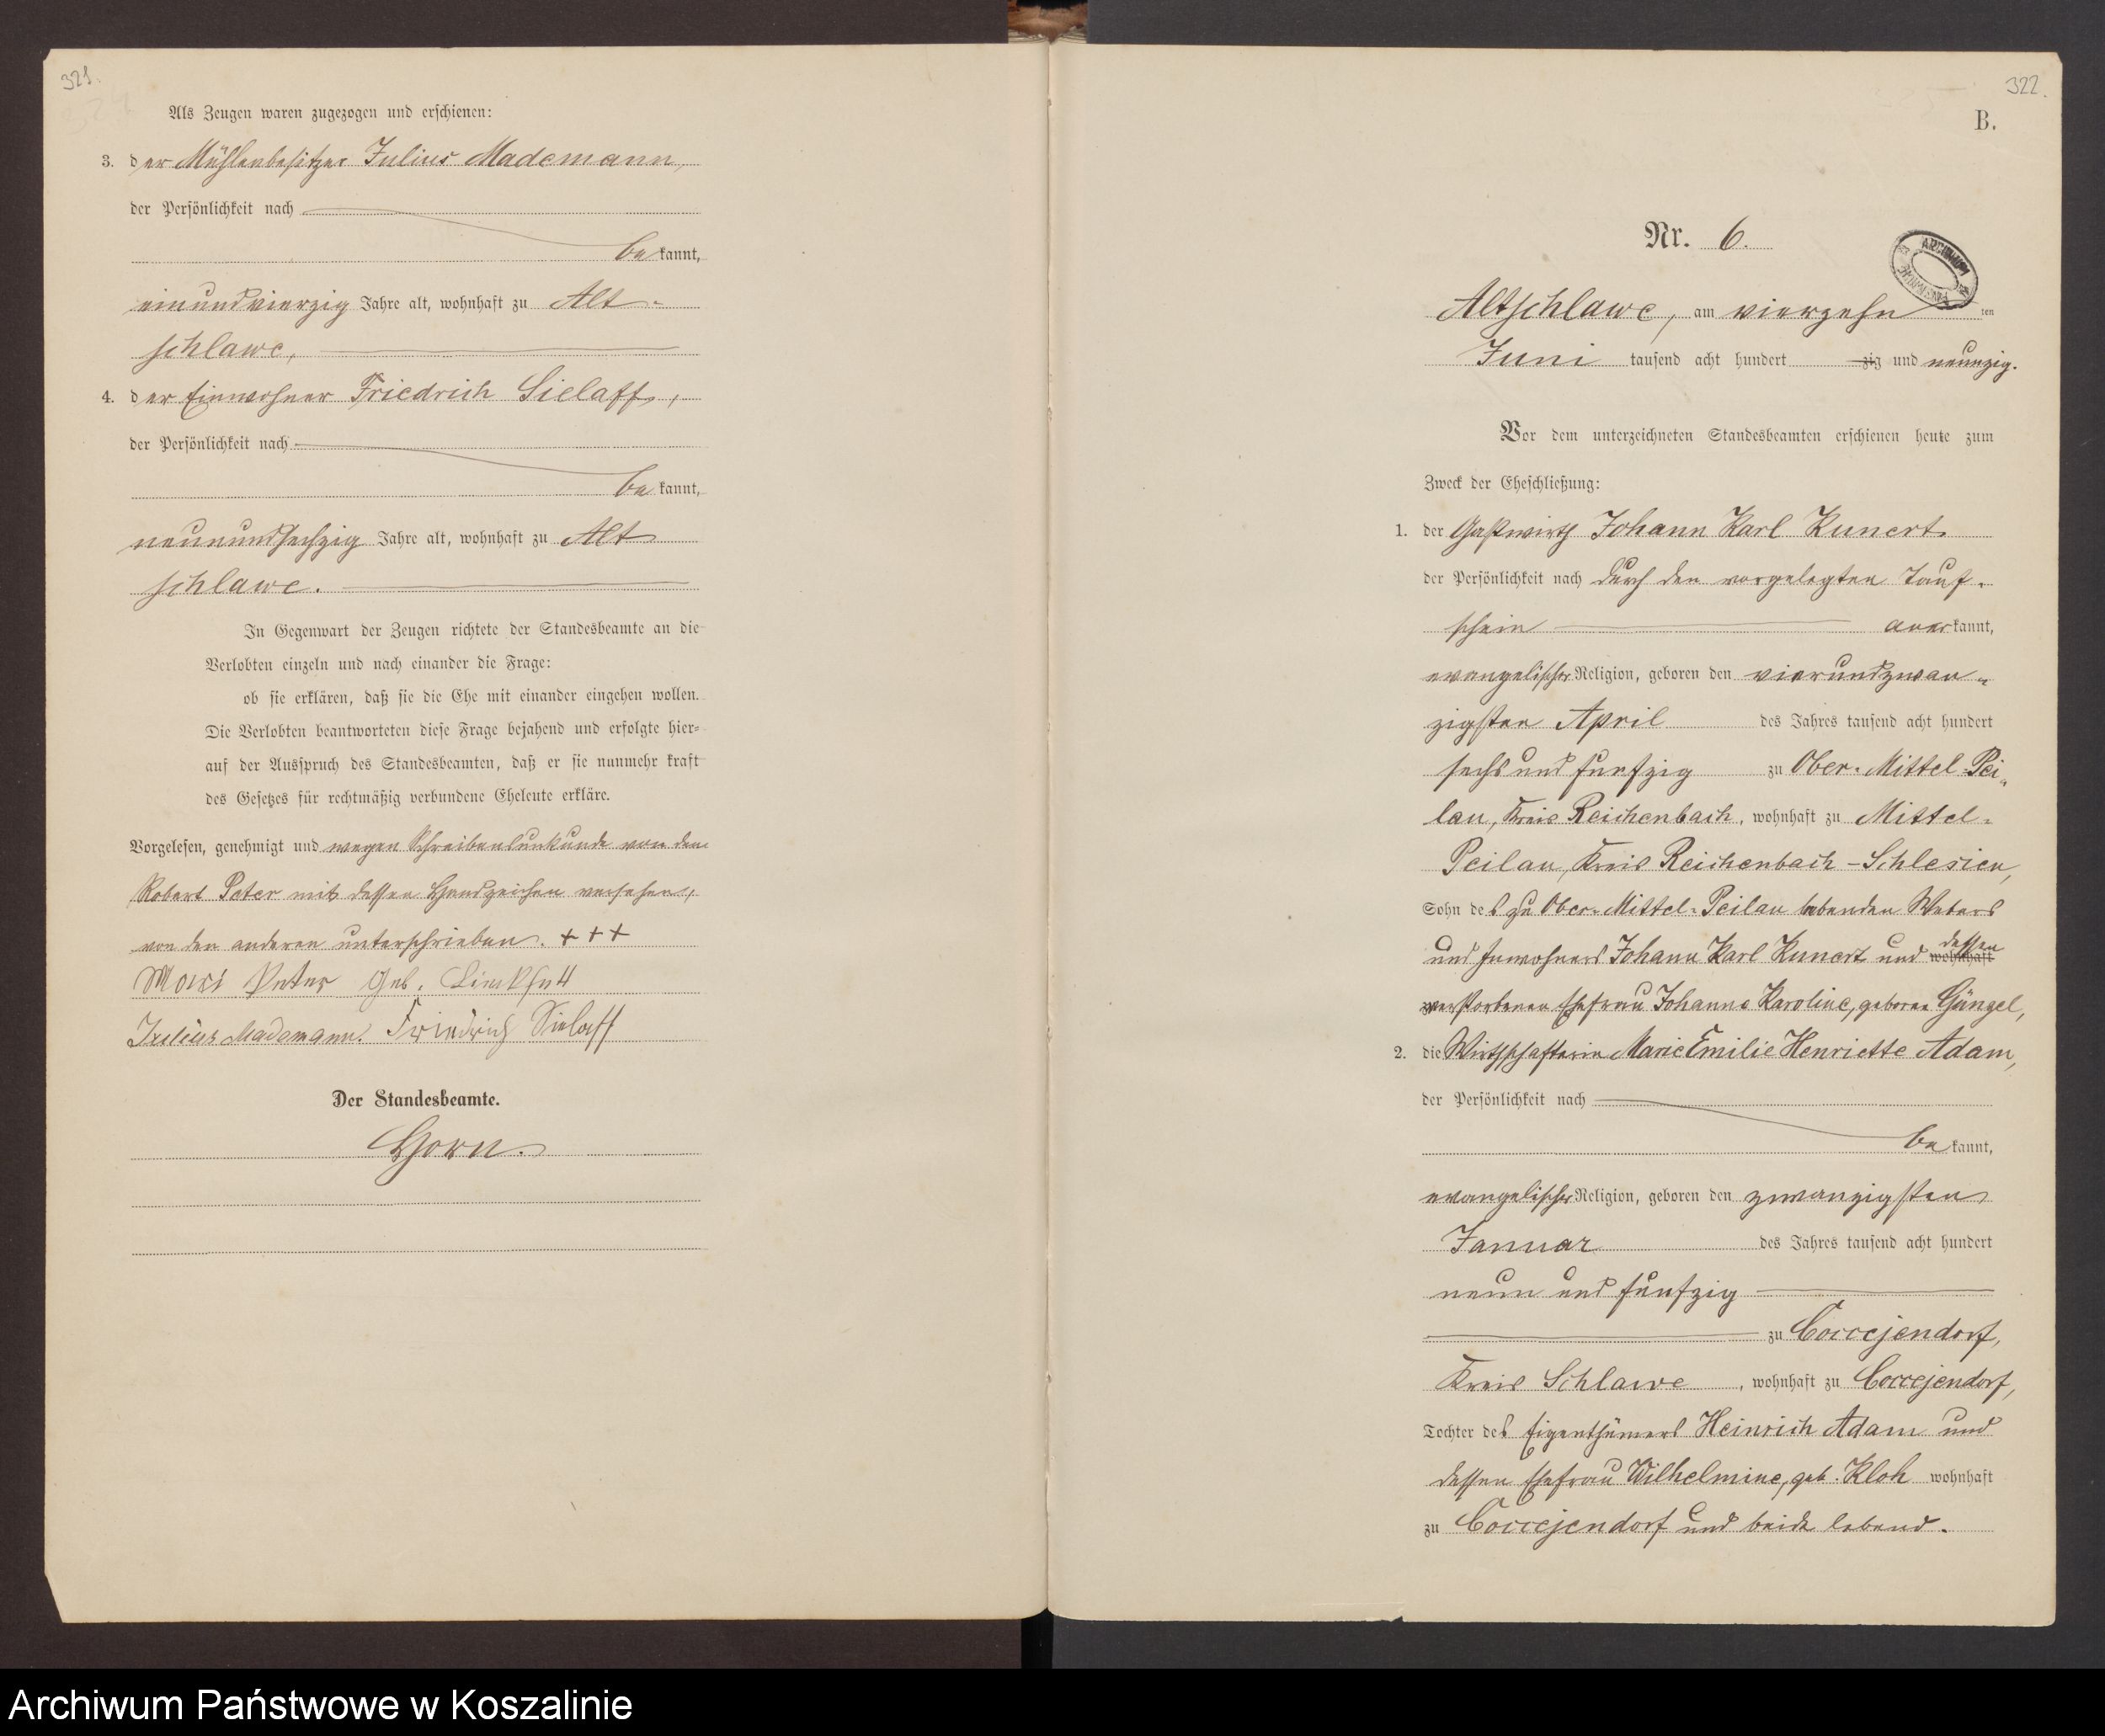 321.
Als Zeugen waren zugezogen und erschienen:
3. der Mühlenbesitzer Julius Mademann,
der Persönlichkeit nach
bekannt,
einundvierzig Jahre alt, wohnhaft zu Alt-
schlawe,
4. der Einwohner Friedrich Sielaff,
der Persönlichkeit nach
bekannt,
neunundsechzig Jahre alt, wohnhaft zu Alt
schlawe.
In Gegenwart der Zeugen richtete der Standesbeamte an die
Verlobten einzeln und nach einander die Frage:
ob sie erklären, daß sie die Ehe mit einander eingehen wollen.
Die Verlobten beantworteten diese Frage bejahend und erfolgte hier-
auf der Ausspruch des Standesbeamten, daß er sie nunmehr kraft
des Gesetzes für rechtmäßig verbundene Eheleute erkläre.
Vorgelesen, genehmigt und wegen Schreibensunkunde von dem
Robert Peter mit dessen Handzeichen versehen,
von den anderen unterschrieben. +++
Peter geb.
Julius Mademann. Friedrich Sielaff
Der Standesbeamte.
Horn.
322.
B.
Nr. 6.
Altschlawe, am vierzehn ten
Juni tausend acht hundert zig und neunzig.
Vor dem unterzeichneten Standesbeamten erschienen heute zum
Zweck der Eheschließung:
1. der Gastwirth Johann Karl Kunert
der Persönlichkeit nach durch den vorgelegten Tauf-
schein anerkannt,
evangelischer Religion, geboren den vierundzwan-
zigsten April des Jahres tausend acht hundert
sechs und fünfzig zu Ober-Mittel-Pei-
lau, Kreis Reichenbach, wohnhaft zu Mittel-
Peilau, Kreis Reichenbach-Schlesien,
Sohn des zu Ober-Mittel-Peilau lebenden Webers
und Inwohners Johann Karl Kunert und dessen wohnhaft
verstorbenen Ehefrau Johanne Karoline, geboren Güngel,
2. die Wirthschafterin Marie Emilie Henriette Adam,
der Persönlichkeit nach
bekannt,
evangelischer Religion, geboren den zwanzigsten
Januar des Jahres tausend acht hundert
neun und fünfzig
zu Coccejendorf,
Kreis Schlawe, wohnhaft zu Coccejendorf,
Tochter des Eigenthümers Heinrich Adam und
dessen Ehefrau Wilhelmine, geb. Kloh wohnhaft
zu Coccejendorf und beide lebend.
Archiwum Państwowe w Koszalinie